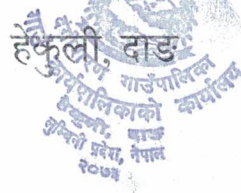 हेकुली, दाङ
गाउँपालिका
कार्यपालिकाको कार्यालय
हेकुली, दाङ
लुम्बिनी प्रदेश, नेपाल
२०७३